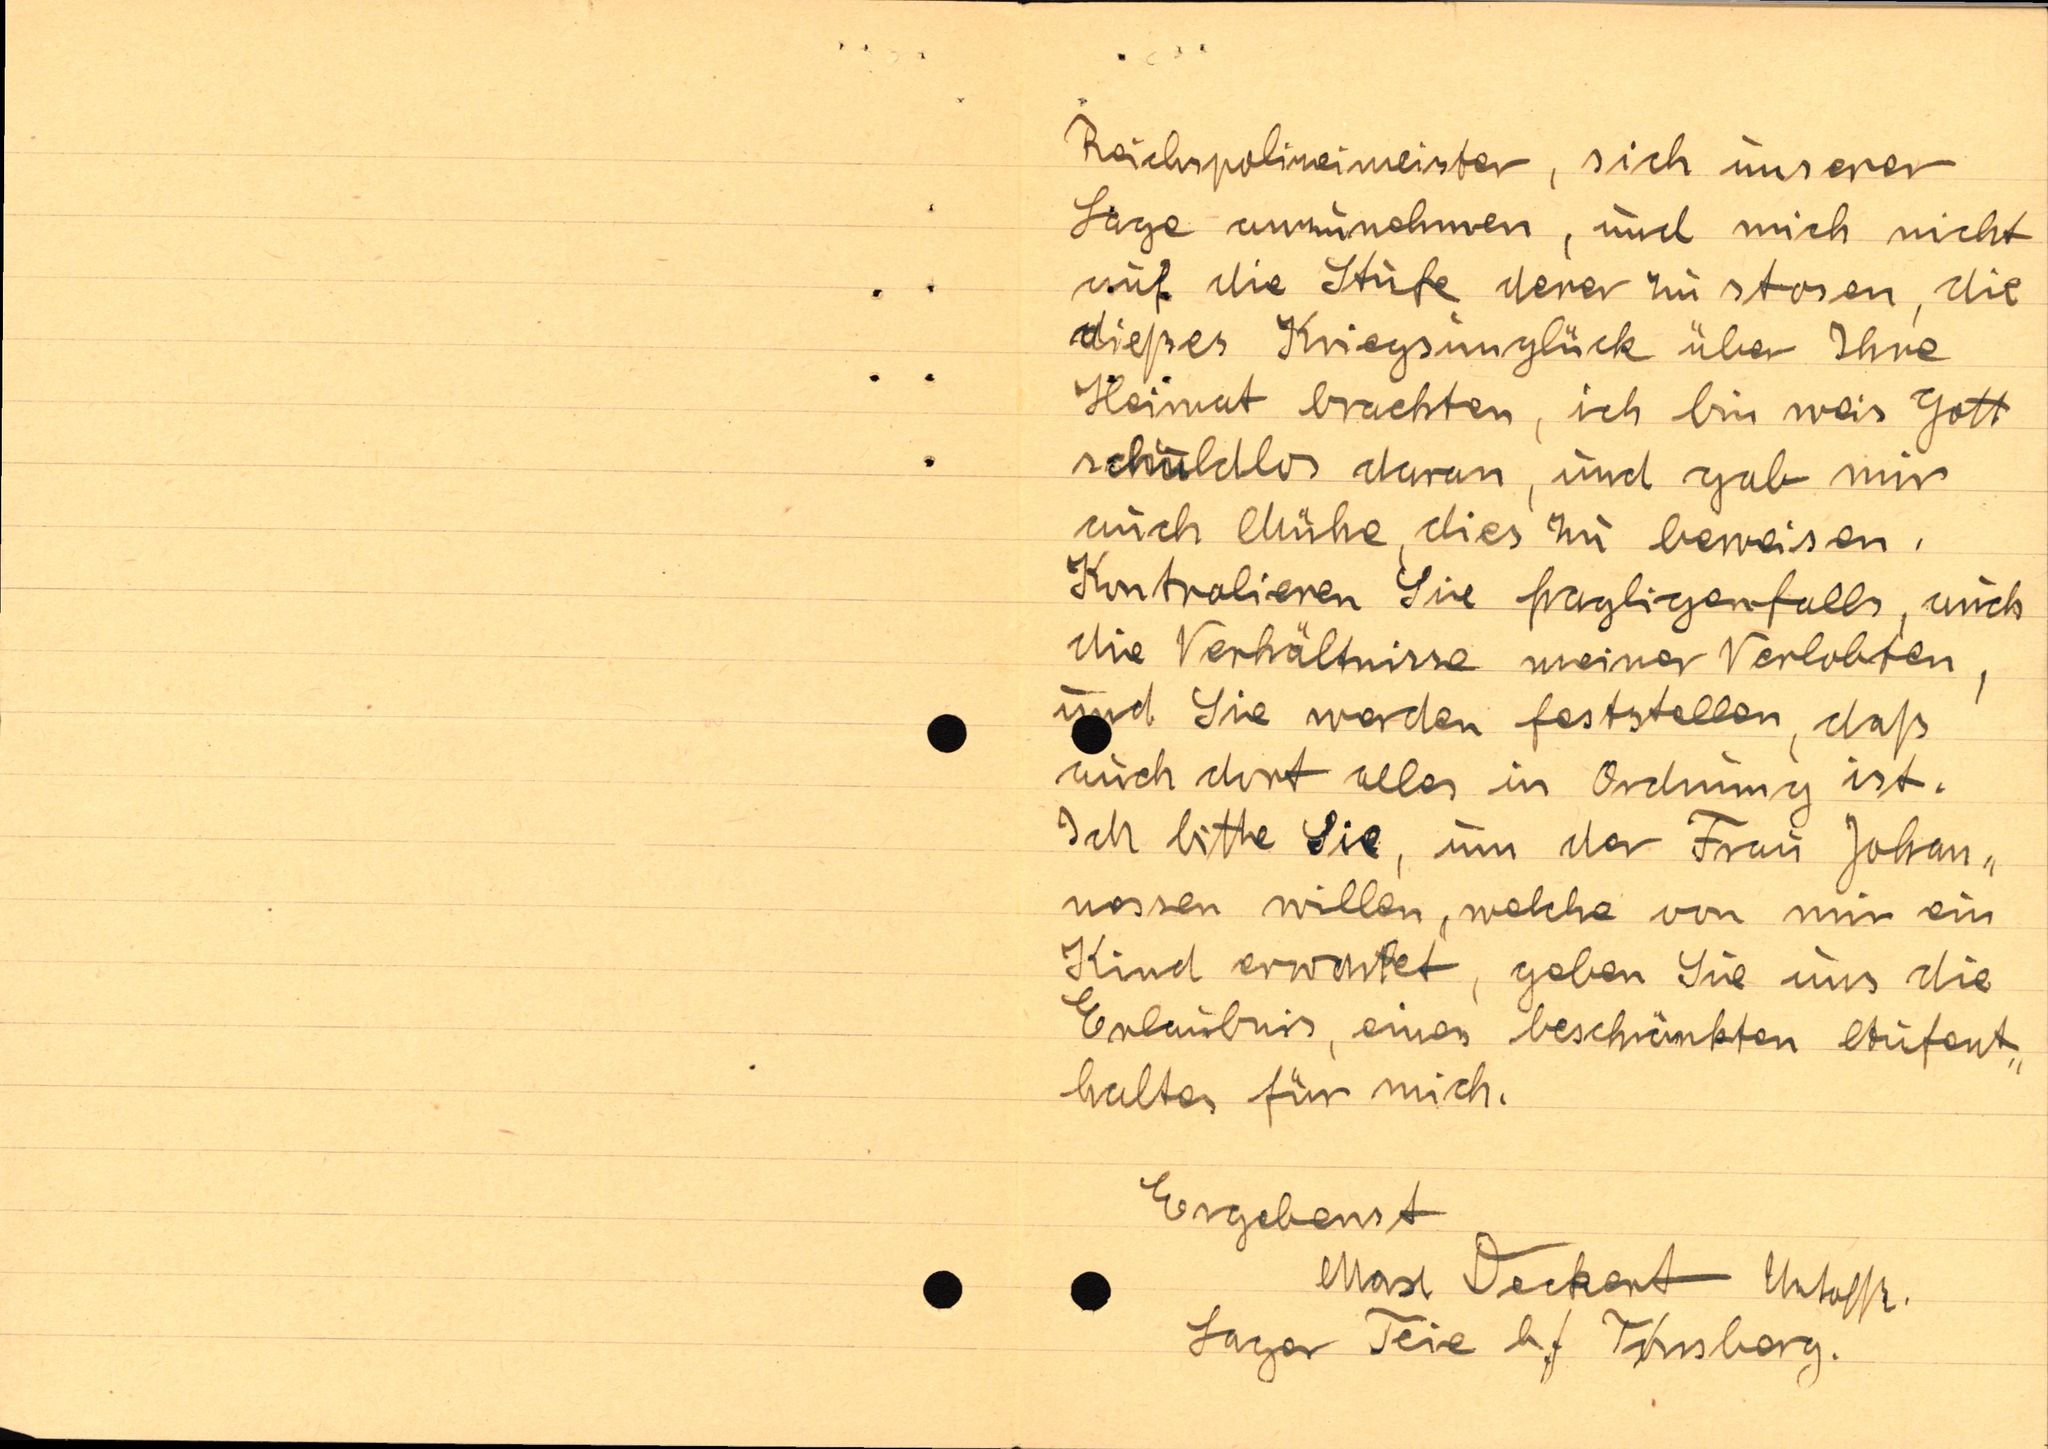 Reichspolizeimeister, sich unserer
Lage anzunehmen, und mich nicht
auf die Stufe derer zu stosen, die
dießes Kriegsunglück über Ihre
Heimat brachten, ich bin weis Gott
schuldlos daran, und gab mir
auch Mühe, dies zu beweisen.
Kontrolieren Sie fragligenfalls, auch
die Verhältnisse meiner Verlobten,
und Sie werden feststellen, daß
auch dort alles in Ordnung ist.
Ich bitte Sie, um der Frau Johan„
nessen willen, welche von mir ein
Kind erwartet, geben Sie uns die
Erlaubnis, eines beschränkten Aufent„
haltes für mich.
Ergebenst
Max Deckert Untoffz.
Lager Teie b/ Tönsberg.